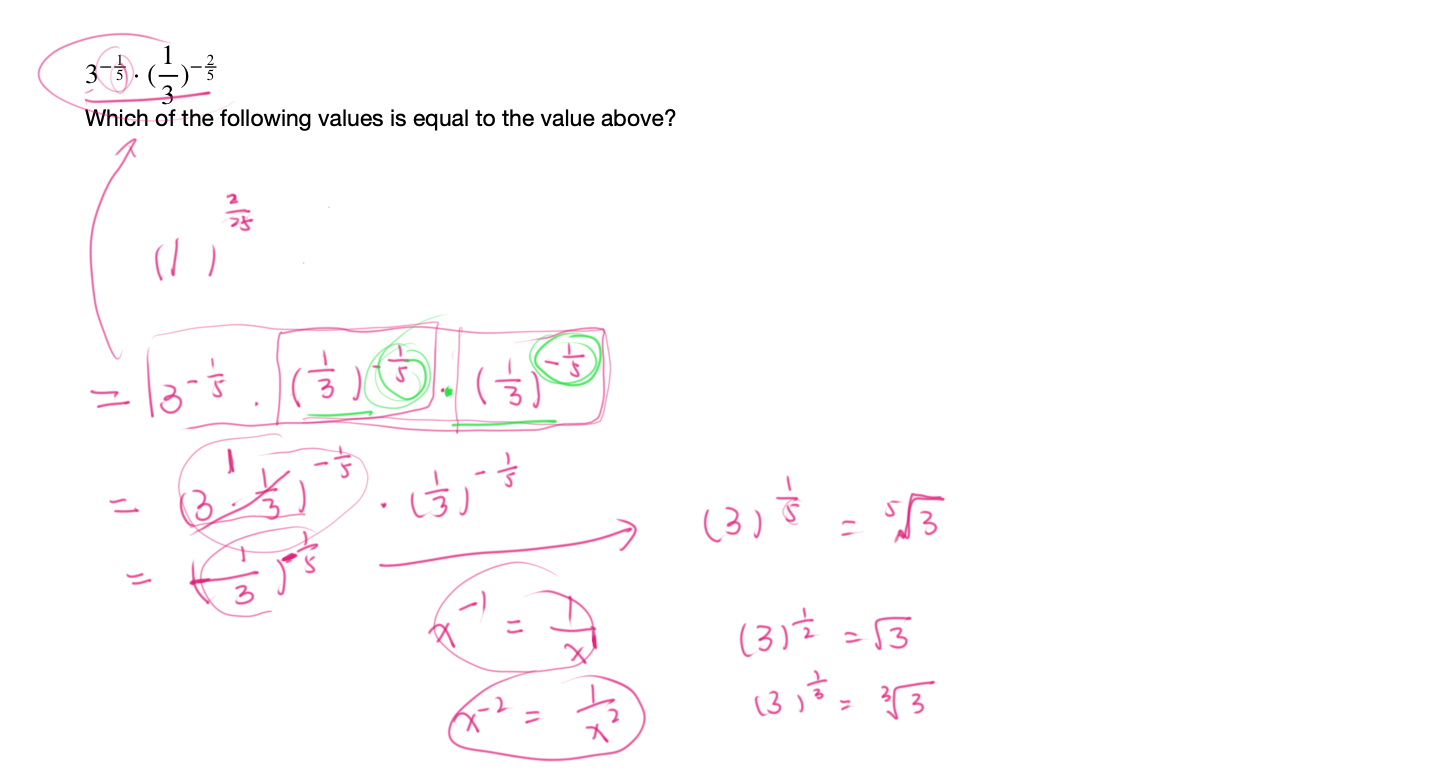 3^{-1/5} · (1/3)^{-2/5}
Which of the following values is equal to the value above?
(1 )^{2/25}
= 3^{-1/5} . (1/3)^{-1/5} · (1/3)^{-1/5}
= (3 · 1/3)^{-1/5} · (1/3)^{-1/5}
1
(3)^{1/5} = ⁵√3
= (1/3)^{-1/5}
x^{-1} = 1/x
(3)^{1/2} = √3
x^{-2} = 1/x^2
(3)^{1/3} = ³√3